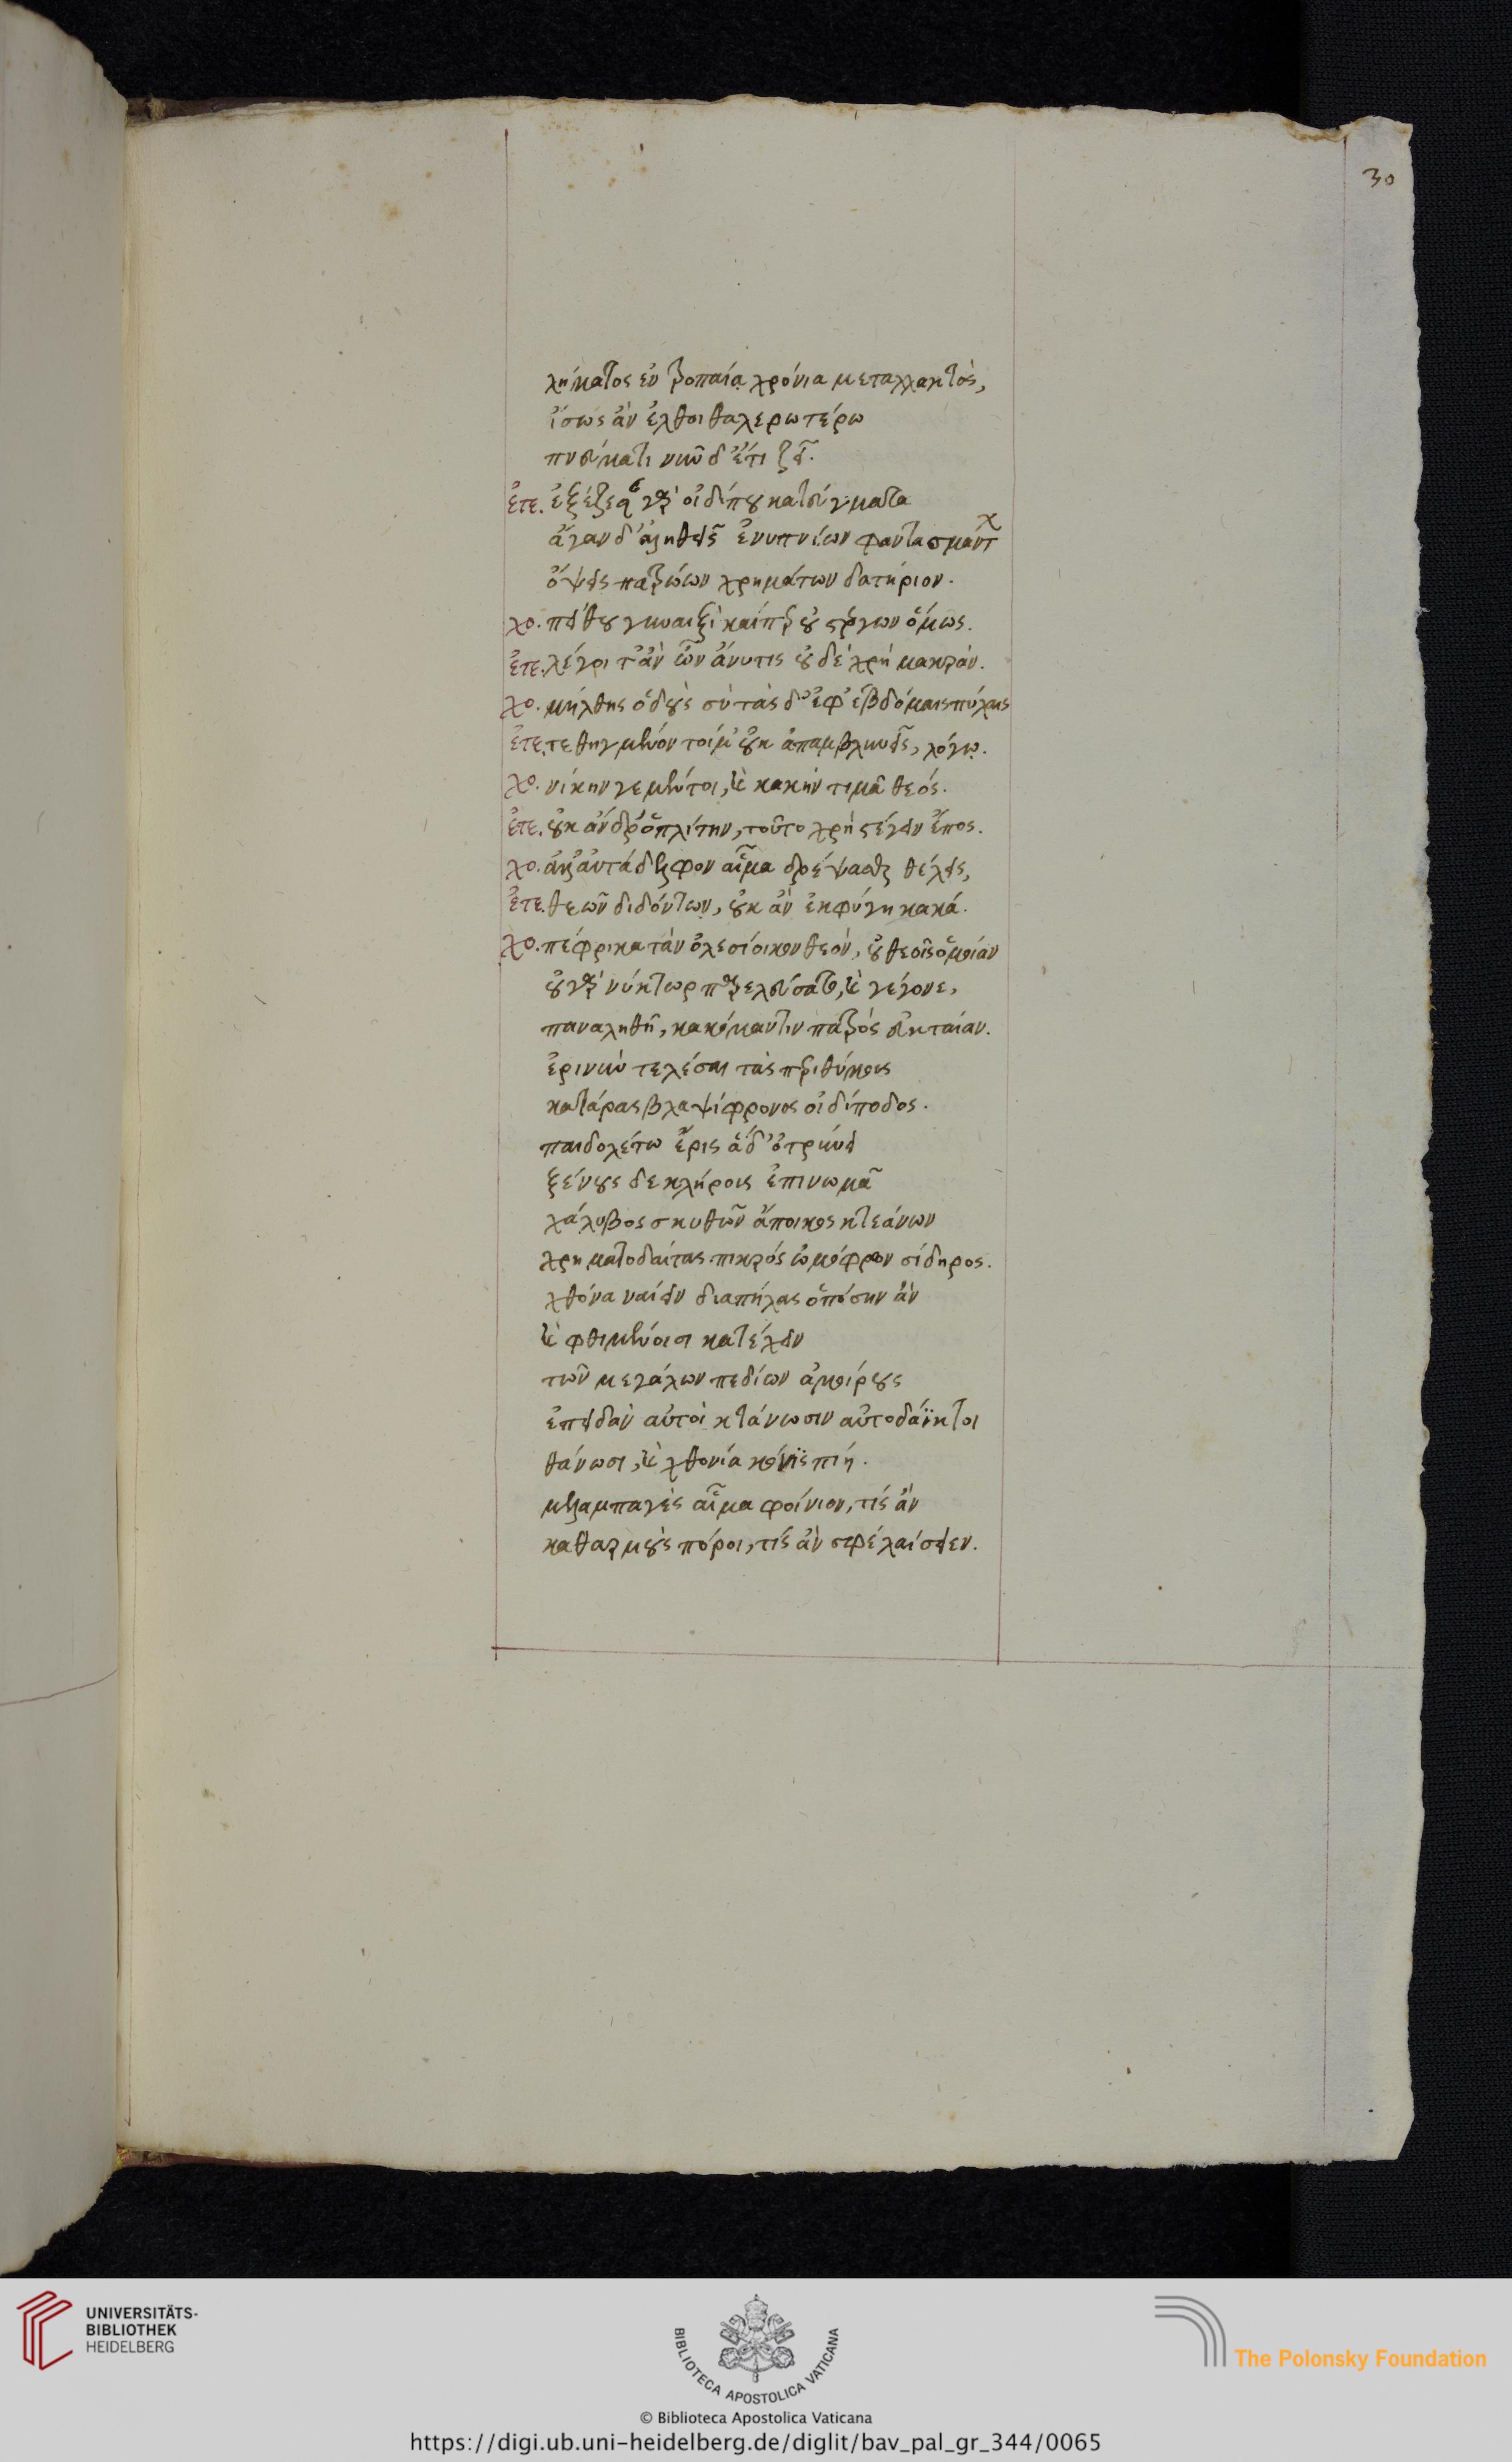 30
λήματος ἐν τροπαία χρόνια μεταλλακτὸς,
ἴσως ἂν ἔλθοι θαλερωτέρω
πνεύματι νῦν δ' ἔτι ζεῖ.
ἐτε. ἐξέζεσε γὰρ οἰδίπου κατεύγματα
ἄγαν δ' ἀληθεῖς ἐνυπνίων φαντασμάτων
ὄψεις πατρώων χρημάτων δατήριοι.
χο. πείθου γυναιξὶ καίπερ οὐ στέργων ὅμως.
ἐτε. λέγοι τ' ἂν ὧν ἄνυτις οὐδὲ χρὴ μακράν.
χο. μὴ ἔλθης ὁδοὺς σὺ τὰς δ' ἐφ' ἑβδόμαις πύλαις
ἐτε. τεθηγμένον τοί μ' οὐκ ἀπαμβλυνεῖς, λόγω.
χο. νίκην γε μέντοι, καὶ κακὴν τιμᾶ θεός.
ἐτε. οὐκ ἄνδρ' ὁπλίτην, τοῦτο χρὴ στέγειν ἔπος.
χο. ἀλλ' αὐτάδελφον αἷμα δρέψασθαι θέλεις,
ἐτε. θεῶν διδόντων, οὐκ ἂν ἐκφύγη κακά.
χο. πέφρικα τὰν ὀλεσίοικον θεὸν, οὐ θεοῖς ὁμοίαν
οὐ γὰρ νύκτωρ παρελεύσατο, καὶ γέγονε,
παναληθῆ, κακόμαντιν πατρός εὐκταίαν.
ἐρινὺν τελέσαι τὰς περιθύμους
κατάρας βλαψίφρονος οἰδίποδος.
παιδολέτω ἔρις ἅδ' ὀτρύνει
ξένους δὲ κλήροις ἐπινωμᾶ
χάλυβος σκυθῶν ἄποικος κτεάνων
χρηματοδαίτας πικρός ὠμόφρων σίδηρος.
χθόνα ναίειν διαπήλας ὁπόσην ἂν
καὶ φθιμένοισι κατέχειν
τῶν μεγάλων πεδίων ἀμοίρους
ἐπειδὰν αὐτοὶ κτάνωσιν αὐτοδάϊκτοι
θάνωσι, καὶ χθονία κόνϊς πίη.
μελαμπαγὲς αἷμα φοίνιον, τίς ἂν
καθαρμοὺς πόροι, τίς ἂν σφέ λούσειεν.
UNIVERSITÄTS-
BIBLIOTHEK
HEIDELBERG
BIBLIOTECA APOSTOLICA VATICANA
The Polonsky Foundation
© Biblioteca Apostolica Vaticana
https://digi.ub.uni-heidelberg.de/diglit/bav_pal_gr_344/0065